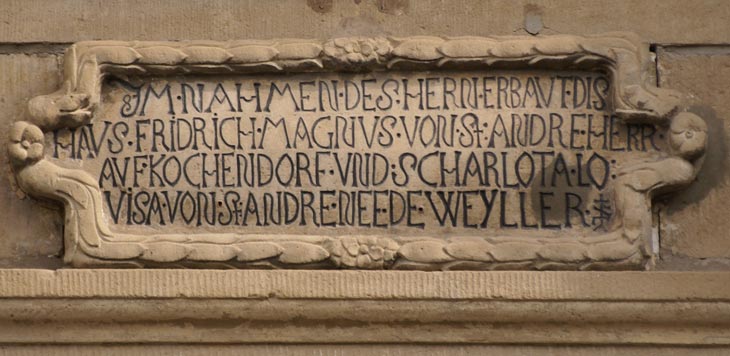 IM·NAHMEN·DES·HERN·ERBAVT·DIS
HAVS·FRIDRICH·MAGNVS·VON·St·ANDRE·HERR·
AVF·KOCHENDORF·VND·SCHARLOTA·LO:
VISA·VON·St·ANDRE·NEE·DE·WEYLLER·